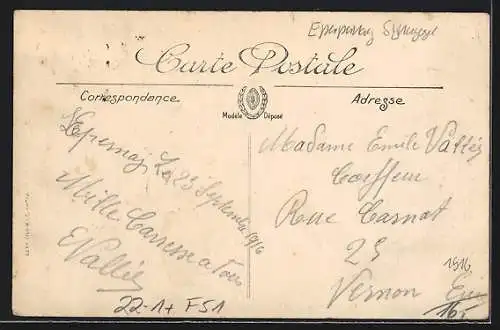 Carte Postale
Correspondance
Adresse
Modèle Déposé
Epernay Le 23 Septembre 1916
Mille Caresse a Tous
E Vallée
Madame Emile Vallée
Coiffeur
Rue Carnot
25
Vernon Eure
1916
22-1+ F51